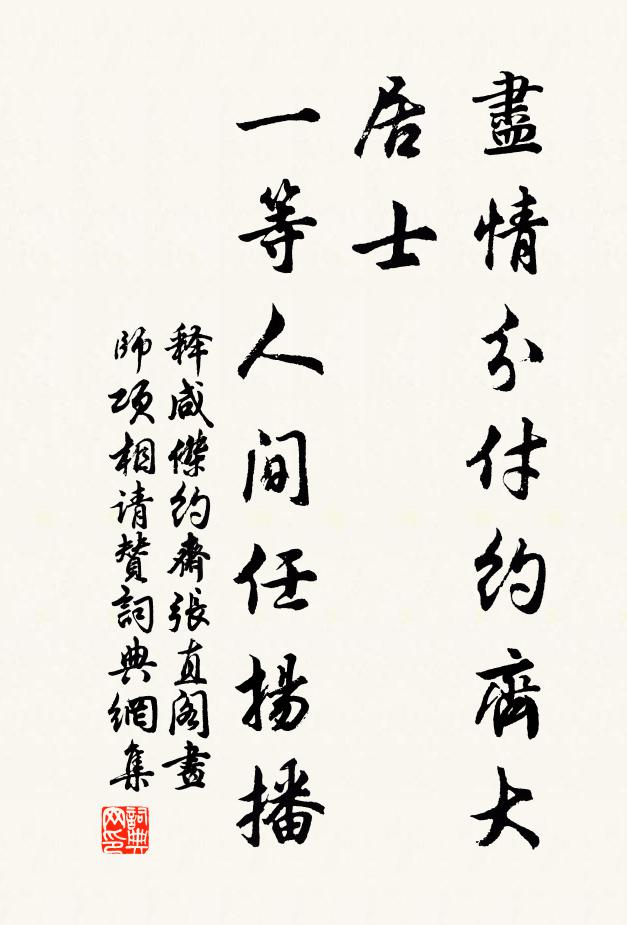 盡情分付約齊大
居士
一等人間任揚播
释咸傑約齋張直阁畫
師项相请贊詞典網集
詞典
网印